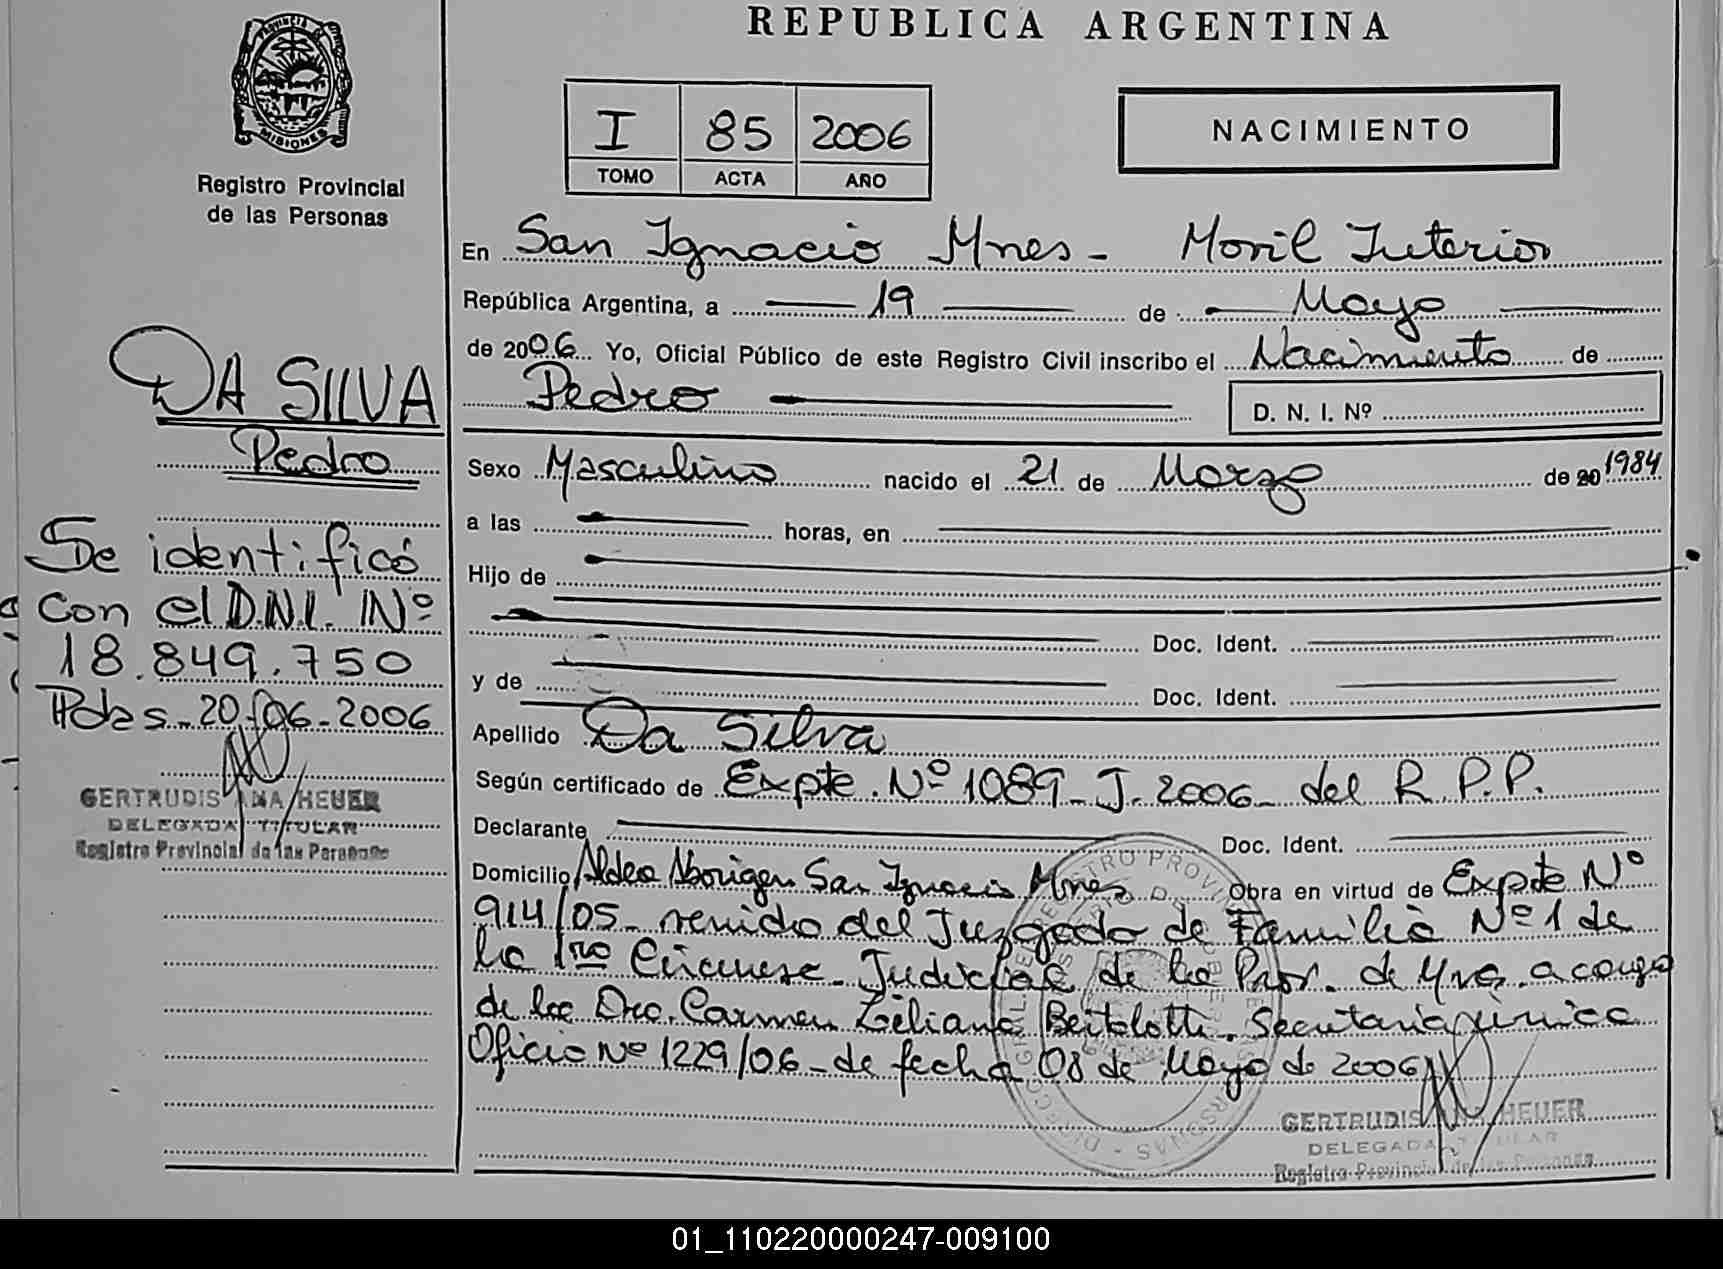 REPUBLICA ARGENTINA
MISIONES
Registro Provincial
de las Personas
I 85 2006
TOMO ACTA AÑO
NACIMIENTO
En San Ignacio Mnes - Movil Interior
República Argentina, a 19 de Mayo
de 2006 Yo, Oficial Público de este Registro Civil inscribo el Nacimiento de
Pedro
D. N. I. Nº
Sexo Masculino nacido el 21 de Marzo de 20 1984
a las horas, en
Hijo de
Doc. Ident.
y de Doc. Ident.
Apellido Da Silva
Según certificado de Expte. Nº 1089-J-2006- del R.P.P.
Declarante Doc. Ident.
Domicilio Aldea Aborigen San Ignacio Mnes Obra en virtud de Expte Nº
914/05- venido del Juzgado de Familia Nº 1 de
la 1ra Judicial de la Prov. de a cargo
de la Dra. Carmen Liliana Bertolotti. Secretaria única
Oficio Nº 1229/06- de fecha 08 de Mayo de 2006
GERTRUDIS HEUER
DELEGADA TITULAR
Registro Provincial de las Personas
DA SILVA
Pedro
Se identificó
con el D.N.I. Nº
18.849.750
Pdas. 20-06-2006
GERTRUDIS ANA HEUER
DELEGADA TITULAR
Registro Provincial de las Personas
01_110220000247-009100